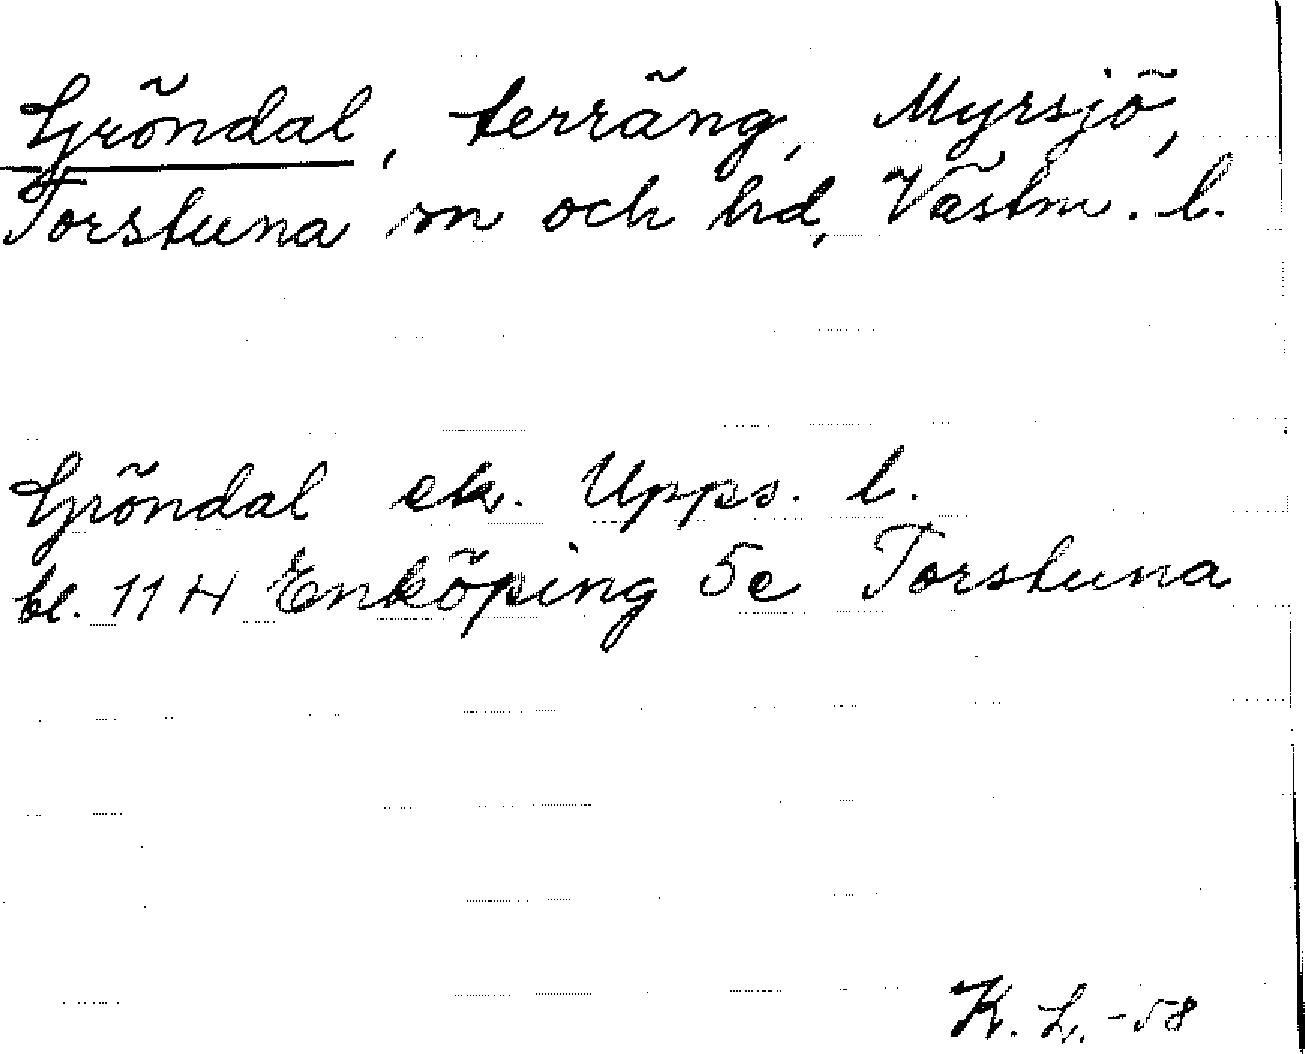 Gröndal, terräng, Myrsjö,
Torstuna sn och hd, Västm. l.
Gröndal ek. Upps. l.
bl. 11 H Enköping 5e Torstuna
K. L. -58